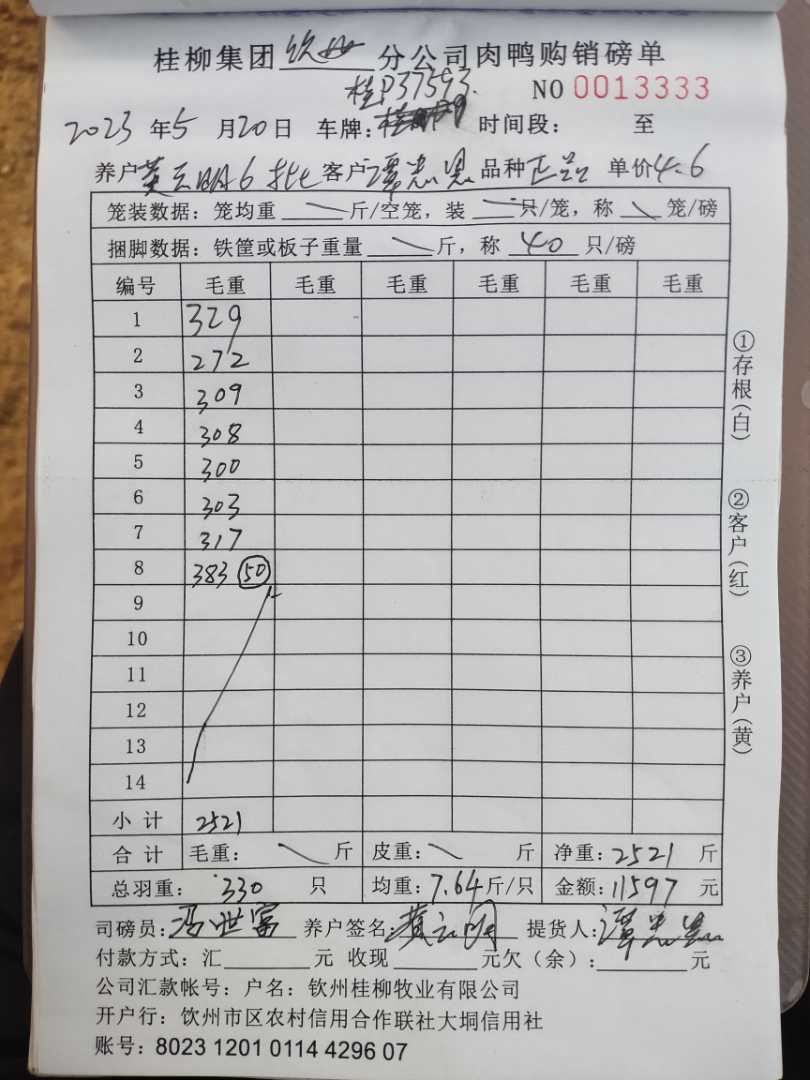 桂柳集团钦州分公司肉鸭购销磅单
桂P37593.
NO 0013333
2023年5月20日 车牌: 时间段: 至
养户黄云明6批 客户谭忠 品种正品 单价4.6
笼装数据:笼均重 斤/空笼,装 只/笼,称 笼/磅
捆脚数据:铁筐或板子重量 斤,称 40 只/磅
编号 毛重 毛重 毛重 毛重 毛重 毛重
1 329
2 272
3 309
4 308
5 300
6 303
7 317
8 383 50
9
10
11
12
13
14
小计 2521
合计 毛重: 斤 皮重: 斤 净重:2521 斤
总羽重:330 只 均重:7.64斤/只 金额:11597 元
司磅员:冯世富 养户签名:黄云明 提货人:谭忠
付款方式:汇 元 收现 元欠(余): 元
公司汇款帐号:户名:钦州桂柳牧业有限公司
开户行:钦州市区农村信用合作联社大垌信用社
账号:8023 1201 0114 4296 07
①存根(白)
②客户(红)
③养户(黄)